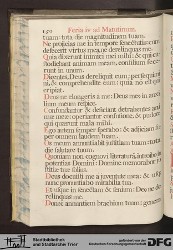 190 Feria iv ad Matutinum.
tuam: tota die magnitudinem tuam.
Ne projicias me in tempore senectutis: cum
defecerit virtus mea, ne derelinquas me.
Quia dixerunt inimici mei mihi: & qui cu-
stodiebant animam meam, consilium fece-
runt in unum.
Dicentes, Deus dereliquit eum: persequimi-
ni, & comprehendite eum: quia non est qui
eripiat.
Deus ne elongeris a me: Deus meus in auxi-
lium meum respice.
Confundantur & deficiant detrahentes ani-
mae meae: operiantur confusione, & pudore
qui quaerunt mala mihi.
Ego autem semper sperabo: & adjiciam su-
per omnem laudem tuam.
Os meum annuntiabit justitiam tuam: tota
die salutare tuum.
Quoniam non cognovi litteraturam, introibo in
potentias Domini: Domine memorabor ju-
stitiae tuae solius.
Deus docuisti me a juventute mea: & usque
nunc pronuntiabo mirabilia tua.
Et usque in senectam & senium: Deus ne de-
relinquas me.
Donec annuntiem brachium tuum:
Stadtbibliothek
und Stadtarchiv Trier
DFG